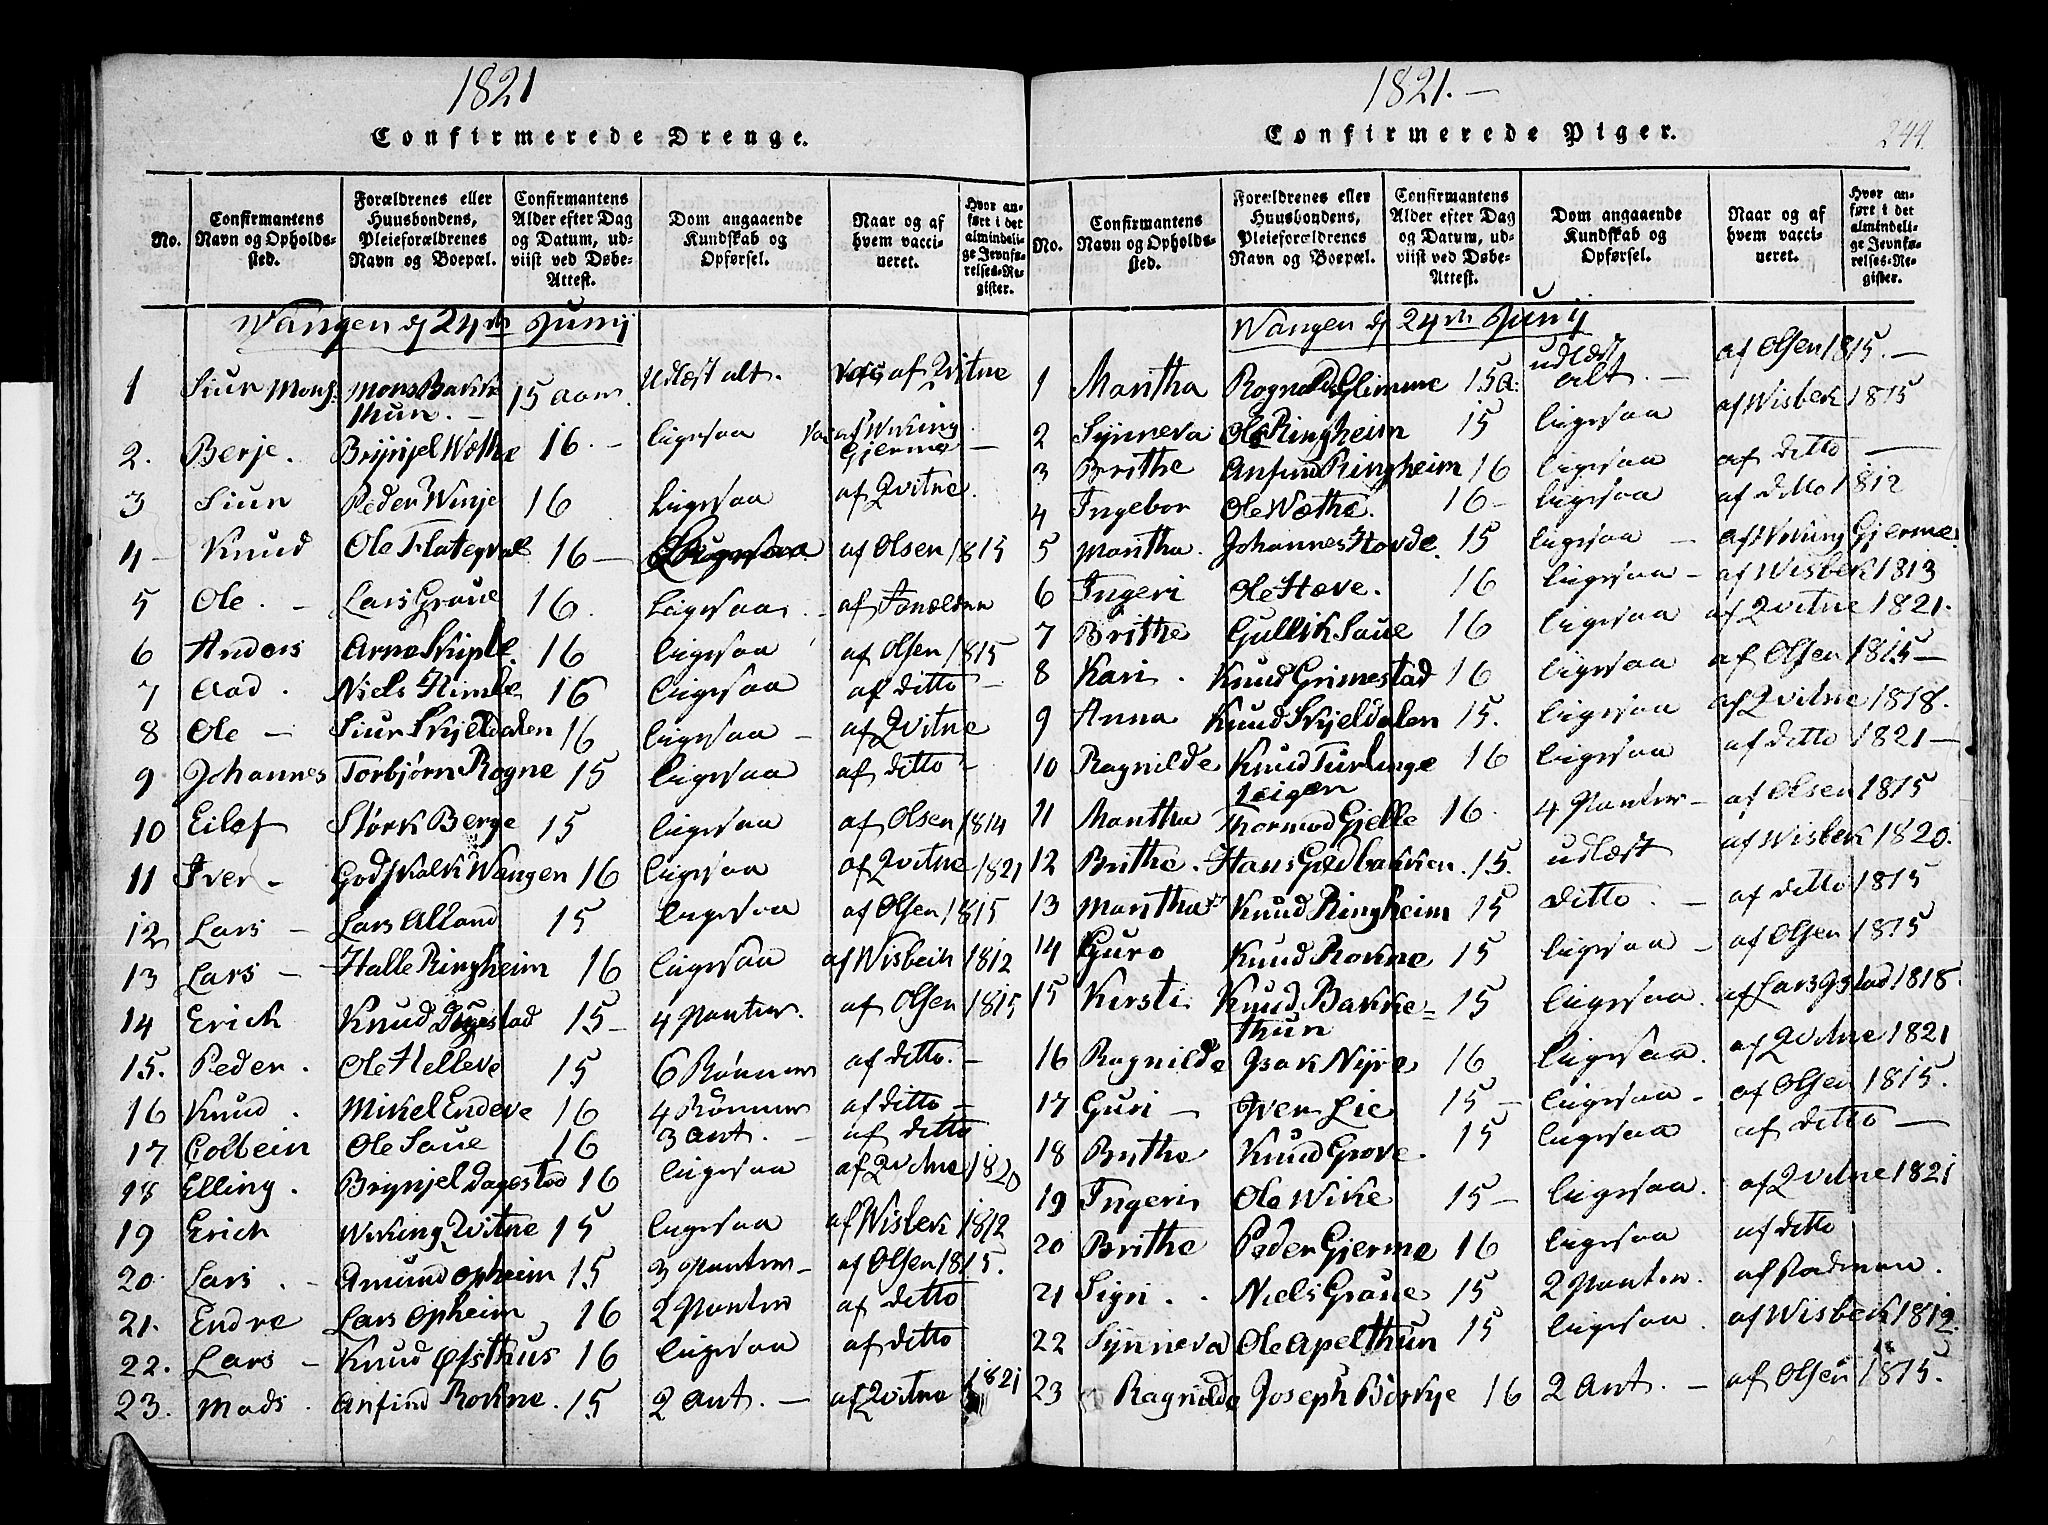 1821
Confirmerede Drenge.
No.
Confirmantens Navn og Opholds-sted.
Forældrenes eller Huusbondens, Pleieforældrenes Navn og Boepæl.
Confirmantens Alder efter Dag og Datum, ud-viist ved Døbe-Attest.
Dom angaaende Kundskab og Opførsel.
Naar og af hvem vacci-neret.
Hvor an-ført i det almindeli-ge Jevnfø-relses-Re-gister.
Wangen d 24de Junij
1 Siur Mons. Mons Bakke thun. 15 aar. Udlæst alt. Vac af Qvitne
2. Berje. Brynjel Wæthe 16. ligesaa Vac af Wiking Gjerme
3 Siur Peder Winje 16 ligesaa af Qvitne.
4 Knud Ole Flateqval 16 Ligesaa af Olsen 1815
5 Ole. Lars Graue 16. Ligesaa. af
6 Anders Arne Skiple. 16 ligesaa af Olsen 1815
7 Aad. Niels Himle 16 ligesaa af ditto
8 Ole Siur Skjeldalen 16 ligesaa af Qvitne
9 Johannes Torbjørn Rogne 15 ligesaa af ditto
10 Eilef Størk Berge 15 ligesaa af Olsen 1814
11 Iver Godskalk Wangen 16 ligesaa af Qvitne 1821
12 Lars Lars Alland 15 ligesaa af Olsen 1815
13 Lars Halle Ringheim 16 ligesaa af Wisbeck 1812
14 Erich Knud Dygestad 15 4 Parter. af Olsen 1815
15. Peder. Ole Helleve 15 6 Bønner af ditto.
16 Knud. Mikel Endeve 16 4 Bønner af ditto
17 Colbein Ole Saue 16 3 Art. af ditto
18 Elling. Brynjel Dagestad 16 ligesaa af Qvitne 1820
19 Erich Wiking Qvitne 15 ligesaa af Wisbek 1812
20 Lars. Amund Opheim 15 3 Parter af Olsen 1815.
21. Endre Lars Opheim 16 2 Parter af ditto
22. Lars Knud Østhus 16 ligesaa af ditto
23. Mads. Anfind Rokne. 15 2 Art. af Qvitne 1821
1821.
244.
Confirmerede Piger.
No.
Confirmantens Navn og Opholds-sted.
Forældrenes eller Huusbondens, Pleieforældrenes Navn og Boepæl.
Confirmantens Alder efter Dag og Datum, ud-viist ved Døbe-Attest.
Dom angaaende Kundskab og Opførsel.
Naar og af hvem vacci-neret.
Hvor an-ført i det almindeli-ge Jevnfø-relses-Re-gister.
Wangen d 24de Junij
1 Martha Rognald Glimme 15 a: udlæst alt. af Olsen 1815.
2 Synneva Ole Ringheim 15 ligesaa af Wisbek 1815
3 Brithe Anfind Ringheim 16 ligesaa af ditto
4 Ingebor Ole Wæthe. 16 ligesaa af ditto 1812
5 Martha. Johannes Hovde. 15 ligesaa af Wiking Gjerme.
6 Ingeri Ole Hæve. 16 ligesaa af Wisbek 1813
7 Brithe Gullik Saue 16 ligesaa af Qvitne 1821.
8 Kari. Knud Grimestad 16 ligesaa af Olsen 1815
9 Anna Knud Skjeldalen 15. ligesaa af Qvitne 1818.
10 Ragnilde Knud Turlinge Teigen 16 ligesaa af ditto 1821
11 Martha Thormod Gjelle 16. 4 Parter af Olsen 1815
12 Brithe. Hans Gjedbakken. 15. udlæst af Wisbek 1820.
13 Martha Knud Ringheim 15 ditto. af ditto 1815
14 Guro Knud Rokne 15 ligesaa af Olsen 1815
15 Kersti Knud Bakke= thun 15 ligesaa. af Lars Gstad 1818.
16 Ragnilde Isak Nyre 16 ligesaa. af Qvitne 1821
17 Guri Iver Lie 15 ligesaa af Olsen 1815.
18 Brithe Knud Grove. 15 ligesaa af ditto
19 Ingeri Ole Wike 15 ligesaa. af Qvitne 1821
20 Brithe Peder Gjerme 16 ligesaa af ditto
21 Sigri. Niels Graue 15 2 Parter. af Radman.
22 Synneva Ole Apelthun 15 ligesaa. af Wisbek 1812.
23 Ragnilde Joseph Børkje 16 2 Art. af Olsen 1815.